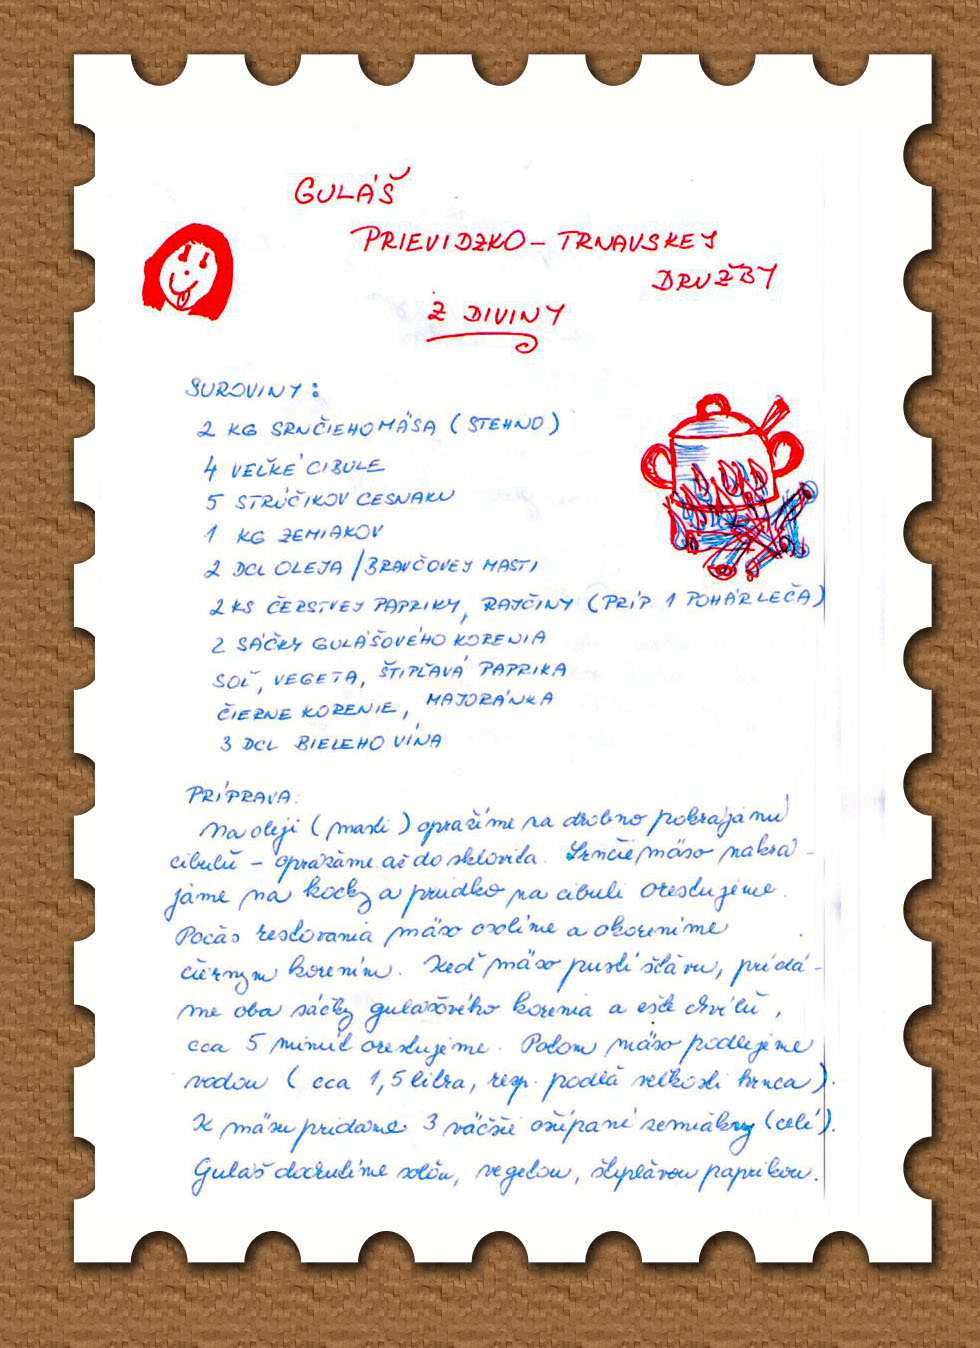 GULÁŠ
PRIEVIDZKO - TRNAVSKEJ
DRUŽBY
Z DIVINY
SUROVINY:
2 KG SRNČIEHO MÄSA (STEHNO)
4 VEĽKÉ CIBULE
5 STRÚČIKOV CESNAKU
1 KG ZEMIAKOV
2 DCL OLEJA / BRAVČOVEJ MASTI
2 KS ČERSTVEJ PAPRIKY, RAJČINY (PRÍP 1 POHÁR LEČA)
2 SÁČKY GULÁŠOVÉHO KORENIA
SOĽ, VEGETA, ŠTIPĽAVÁ PAPRIKA
ČIERNE KORENIE, MAJORÁNKA
3 DCL BIELEHO VÍNA
PRÍPRAVA:
Na oleji (masti) opražíme na drobno pokrájanú
cibuľu - opražáme až do sklovita. Srnčie mäso nakrá-
jame na kocky a prudko na cibuli orestujeme.
Počas restovania mäso osolíme a okoreníme
čiernym korením. Keď mäso pustí šťavu, pridá-
me oba sáčky gulášového korenia a ešte chvíľu,
cca 5 minút orestujeme. Potom mäso podlejeme
vodou (cca 1,5 litra, resp. podľa veľkosti hrnca).
K mäsu pridáme 3 väčšie ošúpané zemiaky (celé).
Guláš dochutíme soľou, vegetou, štipľavou paprikou.